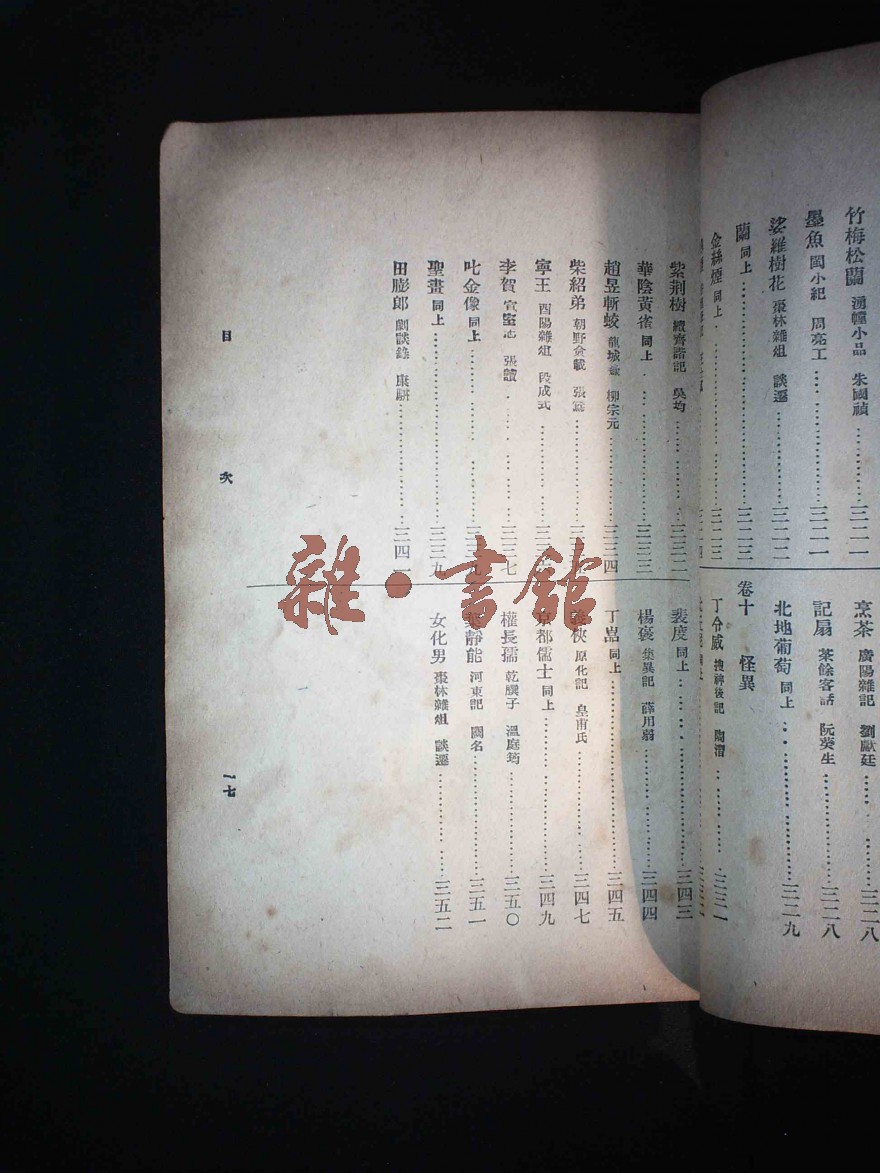 竹梅松蘭 湧幢小品 朱國禎……三二一
墨魚 閩小紀 周亮工……三二一
娑羅樹花 棗林雜俎 談遷……三二二
蘭 同上……三二三
金絲煙 同上……三二三
烹茶 廣陽雜記 劉獻廷……三二八
記扇 茶餘客話 阮葵生……三二八
北地葡萄 同上……三二九
卷十 怪異
丁令威 搜神後記 陶潛……三三一
紫荆樹 續齊諧記 吳均……三三二
華陰黃雀 同上……三三三
趙昱斬蛟 龍城錄 柳宗元……三三四
柴紹弟 朝野僉載 張鷟……三三
寧王 酉陽雜俎 段成式……三三
李賀 宣室志 張讀……三三七
叱金像 同上……三三
聖畫 同上……三三九
田膨郎 劇談錄 康駢……三四一
裴度 同上……三四三
楊褒 集異記 薛用弱……三四四
丁嵓 同上……三四五
義俠 原化記 皇甫氏……三四七
京都儒士 同上……三四九
權長孺 乾𦠆子 溫庭筠……三五〇
葉靜能 河東記 闕名……三五一
女化男 棗林雜俎 談遷……三五二
目次 一七
雜·書館